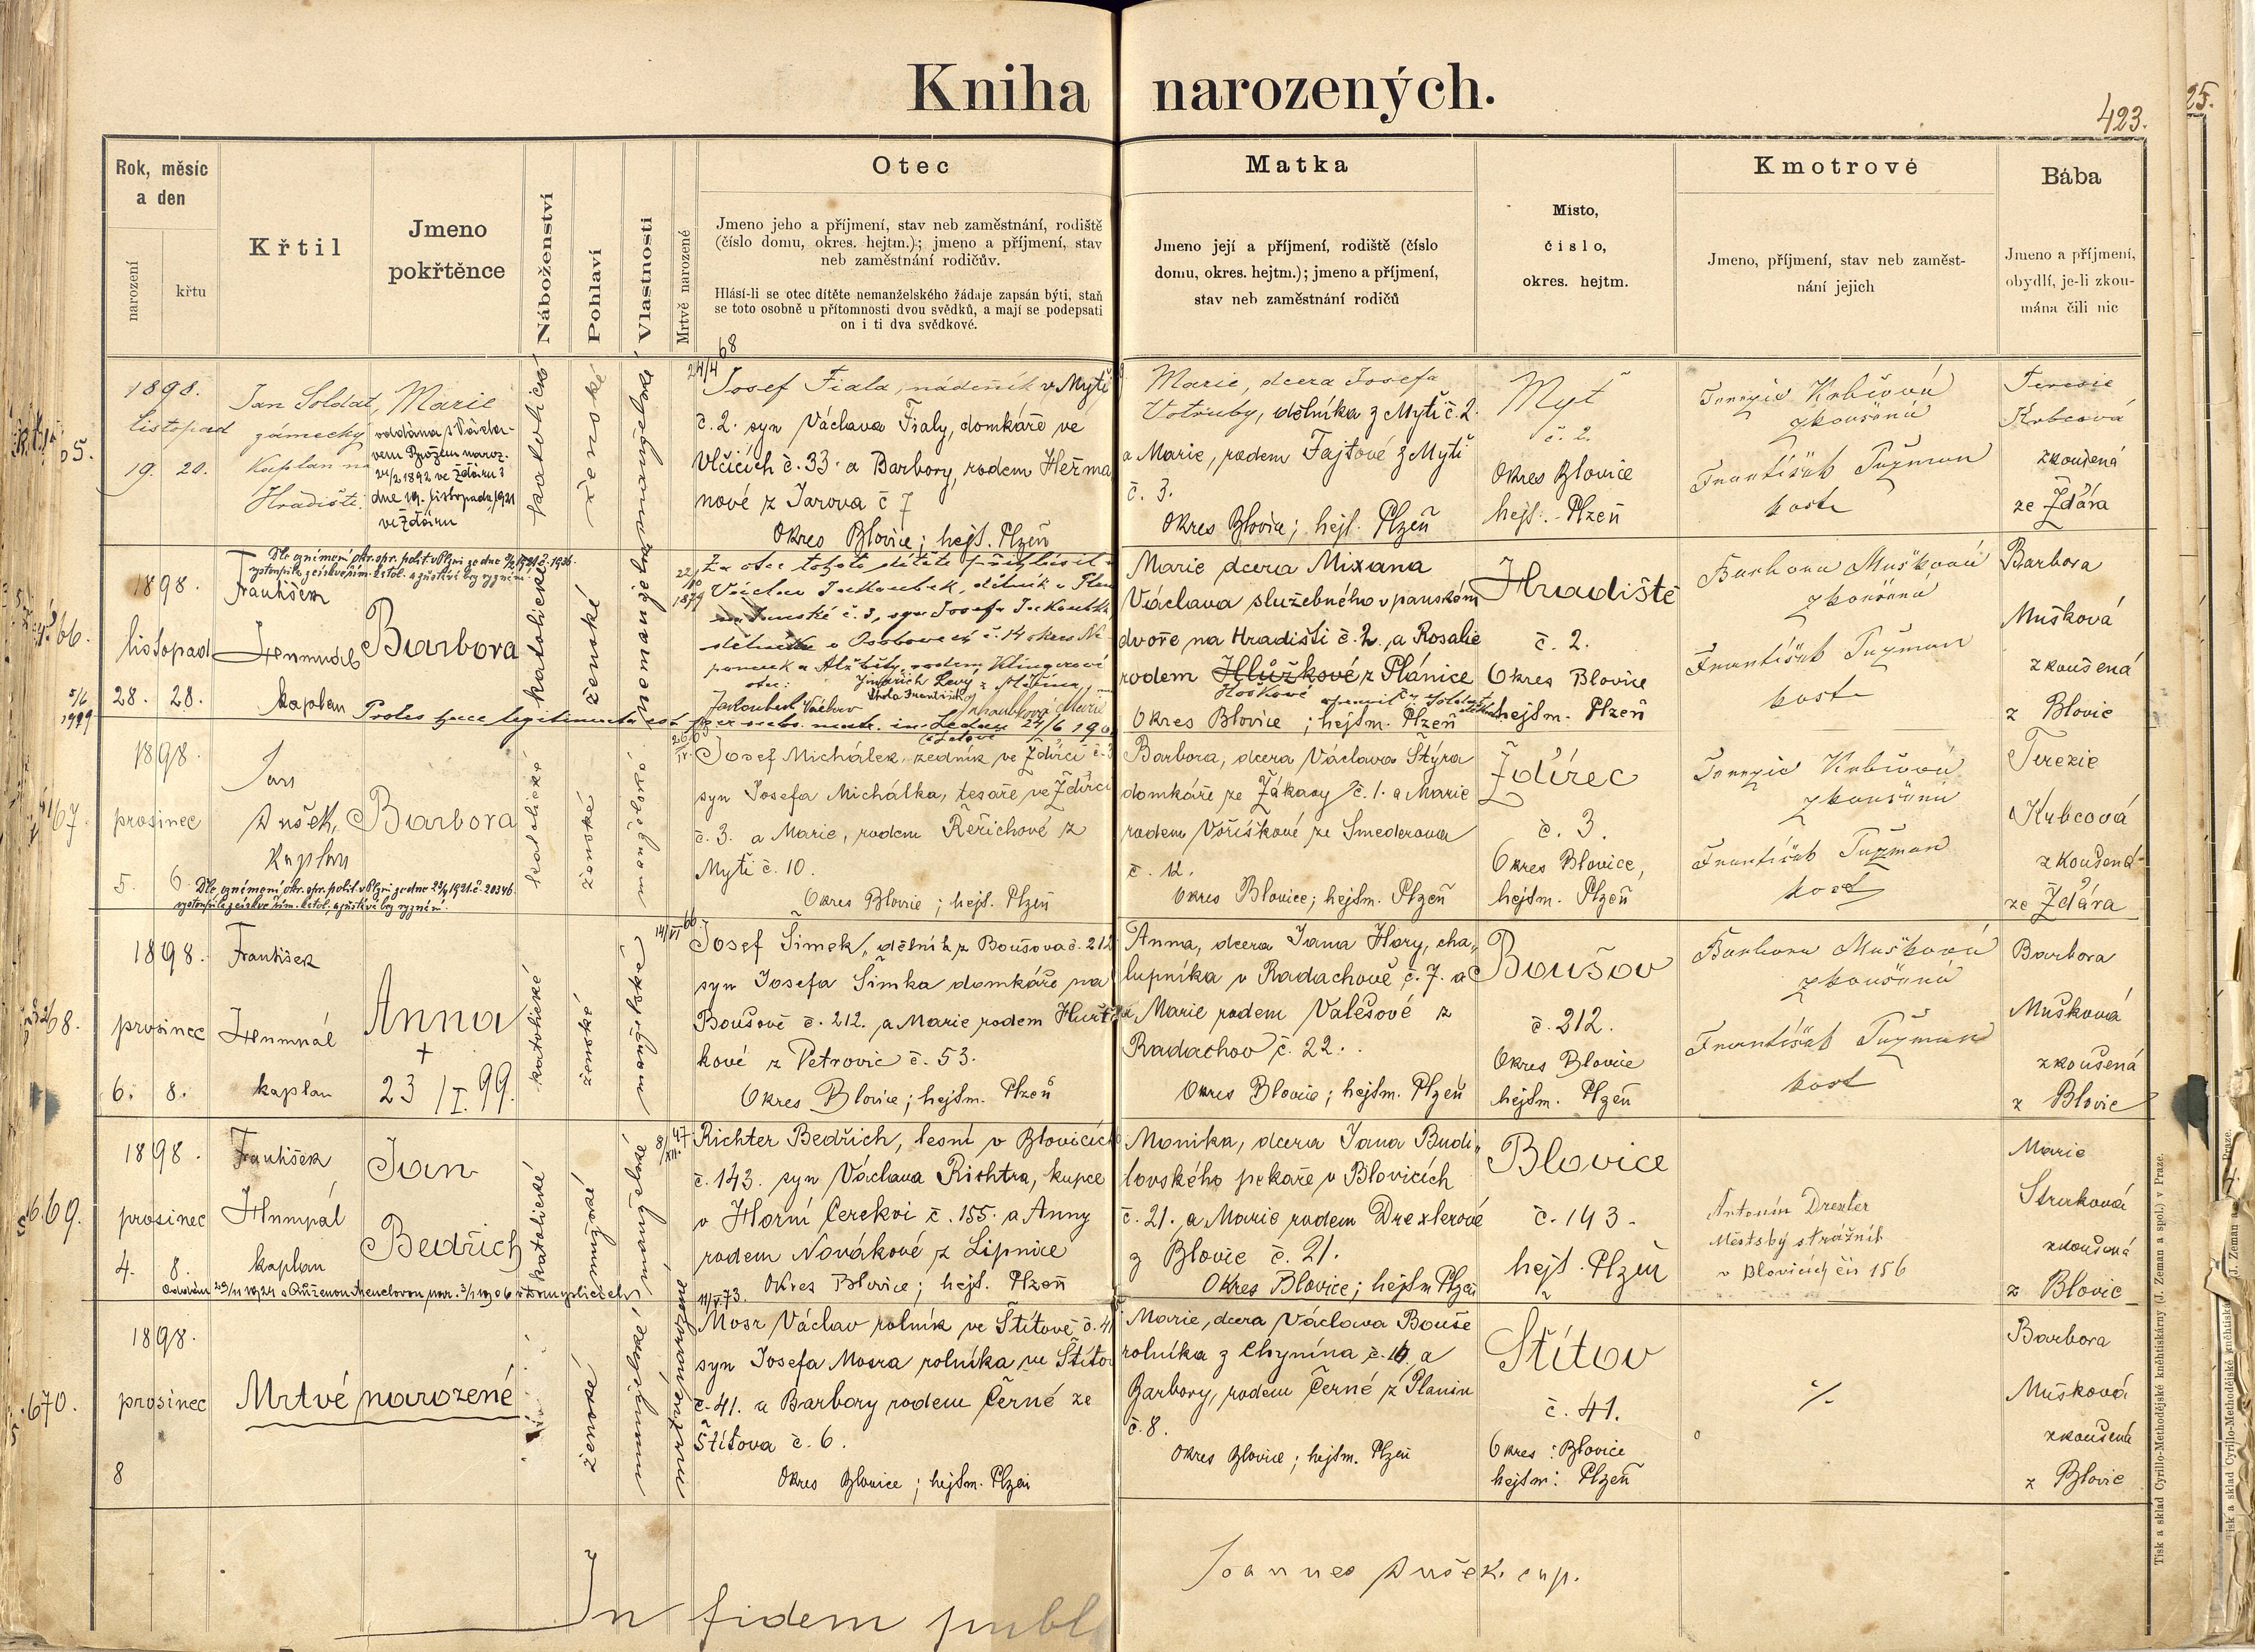 Kniha narozených.
423.
25.
Rok, měsíc
a den
narození
křtu
Křtil
Jmeno
pokřtěnce
Náboženství
Pohlaví
Vlastnosti
Mrtvě narozené
Otec
Jmeno jeho a příjmení, stav neb zaměstnání, rodiště
(číslo domu, okres. hejtm.); jmeno a příjmení, stav
neb zaměstnání rodičův.
Hlásí-li se otec dítěte nemanželského žádaje zapsán býti, staň
se toto osobně u přítomnosti dvou svědků, a mají se podepsati
on i ti dva svědkové.
Matka
Jmeno její a příjmení, rodiště (číslo
domu, okres. hejtm.); jmeno a příjmení,
stav neb zaměstnání rodičů
Místo,
číslo,
okres. hejtm.
Kmotrové
Jmeno, příjmení, stav neb zaměst-
nání jejich
Bába
Jmeno a příjmení,
obydlí, je-li zkou-
mána čili nic
65.
1898.
listopad
19. 20.
Jan Soldat,
zámecký
Kaplan na
Hradišti.
Marie
oddána s Václa-
vem Brožem naroz.
ve Žďáru
dne 19. listopadu 1921
ve Žďáru
katolické
ženské
manželské
24/4 68
Josef Fiala, nádeník v Mýti
č. 2. syn Václava Fialy, domkáře ve
Vlčicích č. 33. a Barbory, rodem Heřma
nové z Jarova č 7
Okres Blovice; hejt. Plzeň
Marie, dcera Josefa
Votruby, dělníka z Mýti č. 2.
a Marie, rodem Fajtové z Mýti
č. 3.
Okres Blovice; hejt. Plzeň
Mýť
č. 2.
Okres Blovice
hejt. Plzeň
Terezie Krbcová
zkoušená
František Tuzman
kost.
Terezie
Krbcová
zkoušená
ze Žďára
66.
Dle oznámení okr. spr. polit. v Plzni ze dne
vystoupila z církve řím. katol. a zůstává bez vyznání.
1898.
listopad
28. 28.
František
Hrumpál
kaplan
Barbora
katolické
ženské
nemanželské
Za otce tohoto dítěte přihlásil
Václav Jakoubek, dělník z
č. 3, syn Josefa Jakoubka
dělníka v Osobovech č. 14 okres
a Alžběty, rodem Klingerové
otec:
Jakoubek Václav
Jakoubková Marie
Proles haec legitimata est per
Marie dcera Mixana
Václava služebného v panském
dvoře na Hradišti č. 2. a Rosalie
rodem Hlůžkové z Plánice
Hoškové
Okres Blovice; hejtm. Plzeň
Hradiště
č. 2.
Okres Blovice
hejtm. Plzeň
Barbora Mušková
zkoušená
František Tuzman
kost.
Barbora
Mušková
zkoušená
z Blovic
67.
1898.
prosinec
5. 6.
Jan
Dušek,
Kaplan
Barbora
Dle oznámení okr. spr. polit. v Plzni ze dne 23/4 1921 č. 20346
vystoupila z církve řím. katol. a zůstává bez vyznání.
katolické
ženské
manželské
Josef Michálek, zedník ve Ždírci č. 3
syn Josefa Michálka, tesaře ve Ždírci
č. 3. a Marie, rodem Řeřichové z
Mýti č. 10.
Okres Blovice; hejt. Plzeň
Barbora, dcera Václava Štýra
domkáře ze Žákavy č. 1. a Marie
rodem Voříškové ze Smederova
č. 12.
Okres Blovice; hejtm. Plzeň
Ždírec
č. 3.
Okres Blovice,
hejtm. Plzeň
Terezie Krbcová
zkoušená
František Tuzman
kost.
Terezie
Krbcová
zkoušená
ze Žďára
68.
1898.
prosinec
6. 8.
František
Hrumpál
kaplan
Anna
+
23/I. 99.
katolické
ženské
manželské
14/VI 66.
Josef Šimek, dělník z Boušova č. 212
syn Josefa Šimka domkáře na
Boušově č. 212. a Marie rodem
kové z Petrovic č. 53.
Okres Blovice; hejtm. Plzeň
Anna, dcera Jana Hory, cha-
lupníka v Radachově č. 7. a
Marie rodem Valešové z
Radachov č. 22.
Okres Blovice; hejtm. Plzeň
Boušov
č. 212.
Okres Blovice
hejtm. Plzeň
Barbora Mušková
zkoušená
František Tuzman
kost
Barbora
Mušková
zkoušená
z Blovic
669.
1898.
prosinec
4. 8.
František
Hrumpál
kaplan
Jan
Bedřich
katolické
mužské
manželské
8/XII. 47.
Richter Bedřich, lesní v Blovicích
č. 143. syn Václava Richtra, kupce
v Horní Cerekvi č. 155. a Anny
rodem Novákové z Lipnice
Okres Blovice; hejt. Plzeň
Monika, dcera Jana Budi-
lovského pekaře v Blovicích
č. 21. a Marie rodem Drexlerové
z Blovic č. 21.
Okres Blovice; hejtm Plzeň
Blovice
č. 143.
hejt. Plzeň
Antonín Drexler
Městský strážník
v Blovicích čís 156
Marie
zkoušená
z Blovic
670.
1898.
prosinec
8
Mrtvě narozené
ženské
manželské
mrtvě narozené
11/V. 73.
Mosr Václav rolník ve Štítově č. 41
syn Josefa Mosra rolníka ve Štítově
č. 41. a Barbory rodem Černé ze
Štítova č. 6.
Okres Blovice; hejtm. Plzeň
Marie, dcera Václava Bouše
rolníka z Chynína č. 10, a
Barbory, rodem Černé z Planin
č. 8.
Okres Blovice; hejtm. Plzeň
Štítov
č. 41.
Okres: Blovice
hejtm: Plzeň
./.
Barbora
Mušková
zkoušená
z Blovic
Joannes Dušek. cap.
In fidem publ
Tisk a sklad Cyrillo-Methodějské knihtiskárny (J. Zeman a spol.) v Praze.